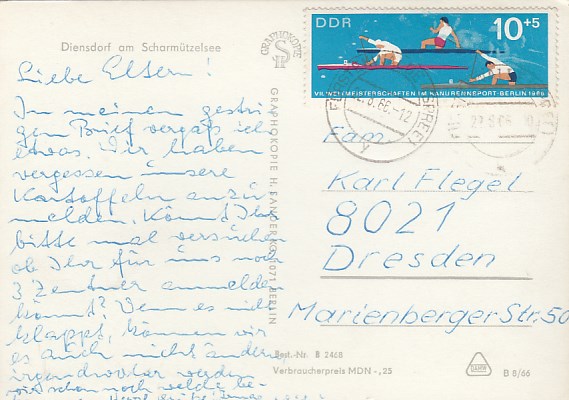 Diensdorf am Scharmützelsee
Liebe Eltern!
In meinen gestri
gen Brief vergaß ich
etwas. Wir haben
vergessen unsere
Kartoffeln anzu
melden. Könnt Ihr
bitte mal versuchen
ob Ihr für uns noch
3 Zentner anmelden
könnt? Wenn es nicht
klappt, können wir
es auch nicht ändern,
irgendwoher werden
wir schon noch welche be-
GRAPHOKOPIE
GRAPHOKOPIE H. SANDER KG, 1071 BERLIN
DDR 10+5
VII. WELTMEISTERSCHAFTEN IM KANURENNSPORT · BERLIN 1966
8.66.-12
(SPREE)
Fam.
Karl Flegel
8021
Dresden
Marienberger Str. 50
Best.-Nr. B 2468
Verbraucherpreis MDN -,25
B 8/66